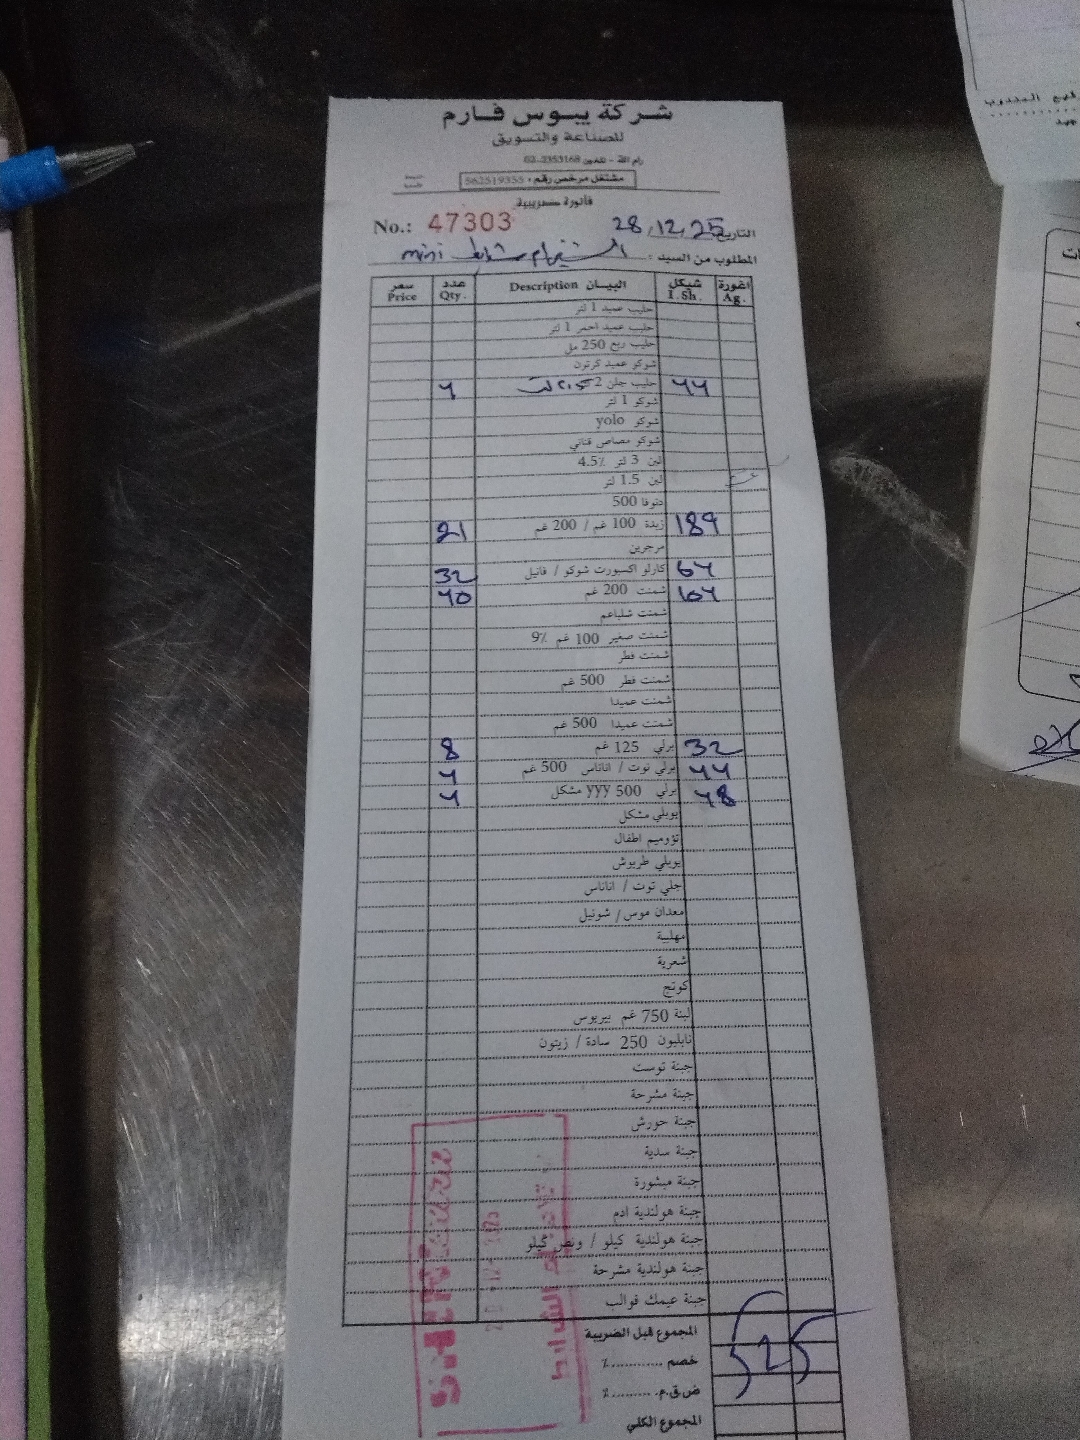 شركة يبوس فارم
للصناعة والتسويق
رام الله - تلفون 02-2353168
مشتغل مرخص رقم: 562519355
فاتورة ضريبية
No.: 47303
التاريخ 28/12/25
المطلوب من السيد: mini
سعر Price عدد Qty. البيان Description شيكل I.Sh. اغورة Ag.
حليب عميد 1 لتر
حليب عميد احمر 1 لتر
حليب ربع 250 مل
شوكو عميد كرتون
4 حليب جلن 2 44
شوكو 1 لتر
شوكو yolo
شوكو مصاص قناني
لبن 3 لتر 4.5٪
لبن 1.5 لتر
دنوفا 500
21 زبدة 100 غم / 200 غم 189
مرجرين
32 كارلو اكسبورت شوكو / فانيل 64
40 شمنت 200 غم 104
شمنت شلباعم
شمنت صغير 100 غم 9٪
شمنت فطر
شمنت فطر 500 غم
شمنت عميدا
شمنت عميدا 500 غم
8 برلي 125 غم 32
4 برلي توت / اناناس 500 غم 44
4 برلي 500 yyy مشكل 48
يوبلي مشكل
تؤوميم اطفال
يوبلي طربوش
جلي توت / اناناس
معدان موس / شونيل
مهلبية
شعرية
كوتج
لبنة 750 غم بيريوس
نابليون 250 سادة / زيتون
جبنة توست
جبنة مشرحة
جبنة حورش
جبنة سدية
جبنة مبشورة
جبنة هولندية ادم
جبنة هولندية كيلو / ونص كيلو
جبنة هولندية مشرحة
جبنة عيمك قوالب
المجموع قبل الضريبة
خصم ............٪
525
ض.ق.م. ..........٪
المجموع الكلي